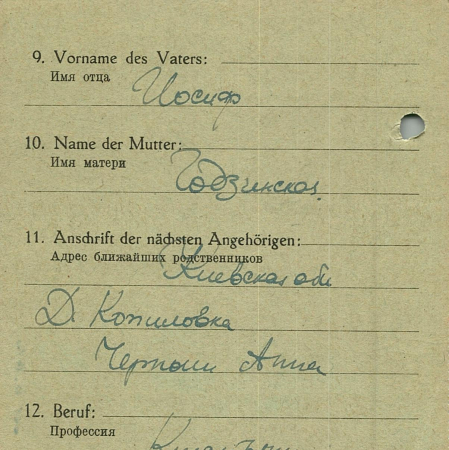 9. Vorname des Vaters:
Имя отца
Иосиф
10. Name der Mutter:
Имя матери
Годзинская
11. Anschrift der nächsten Angehörigen:
Адрес ближайших родственников
Киевская обл
Д. Копиловка
Анна
12. Beruf:
Профессия